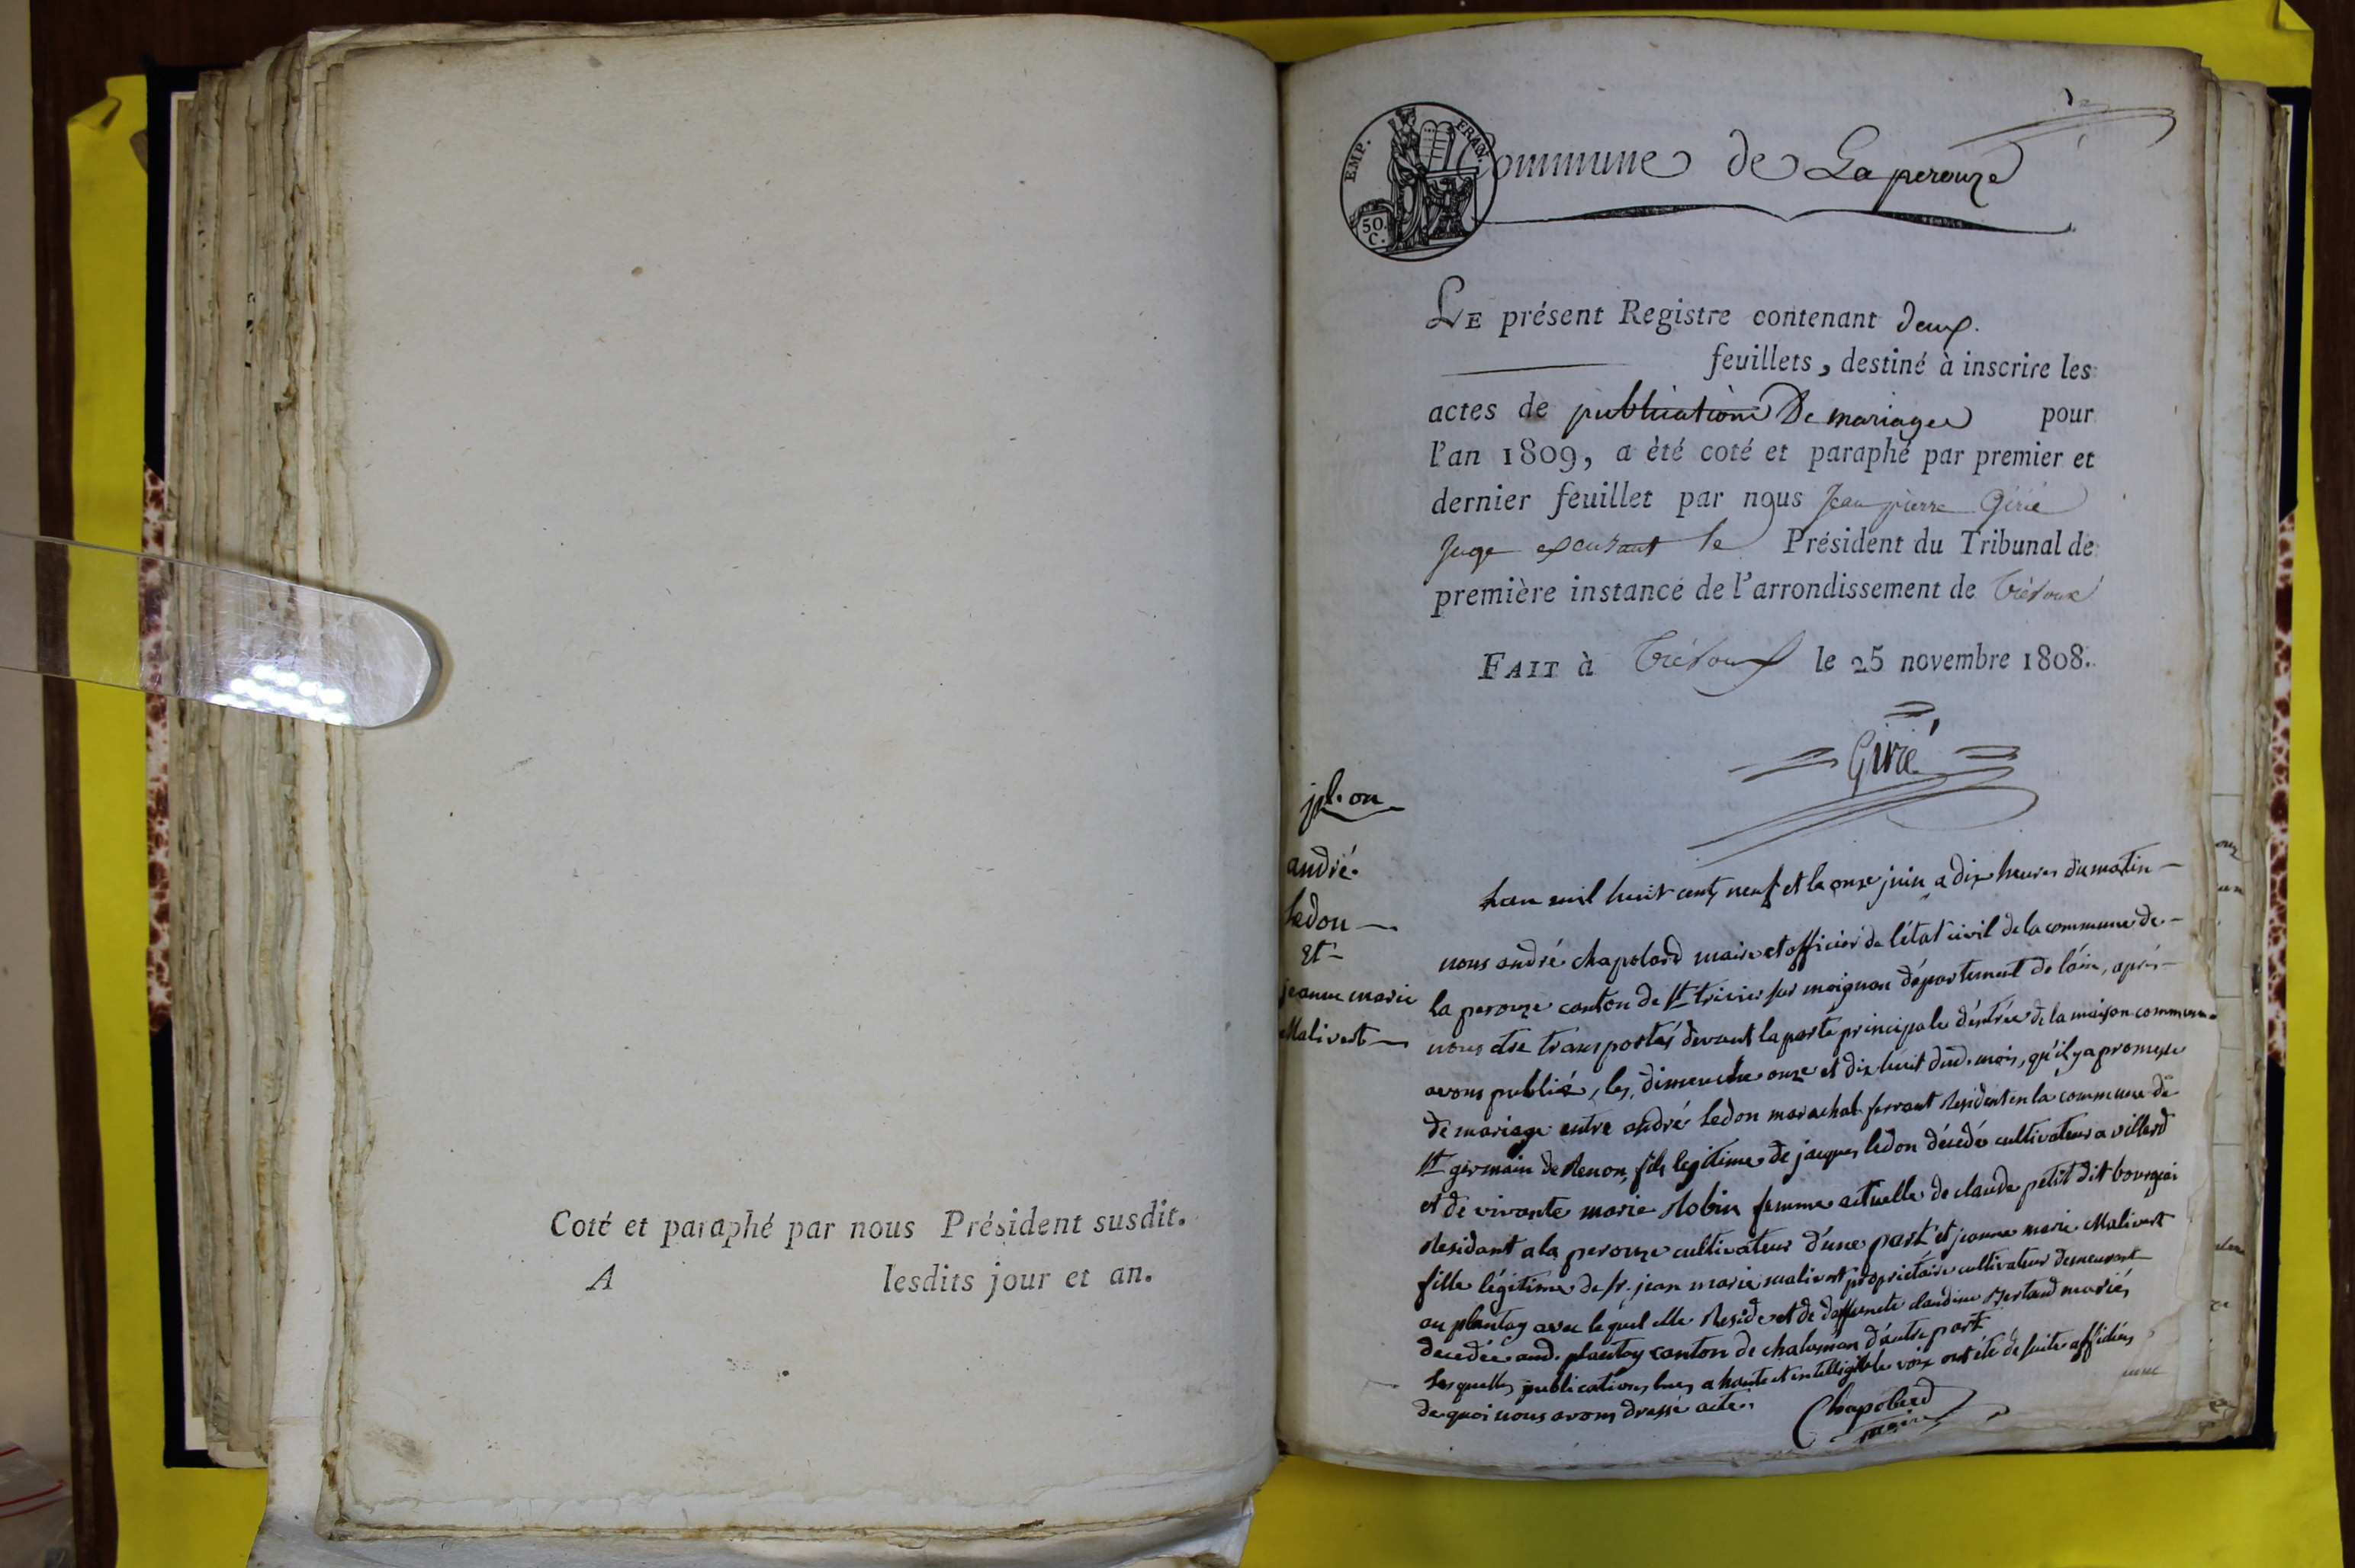 Coté et paraphé par nous Président susdit.
A lesdits jour et an.
EMP. FRAN.
50. C.
Commune de La perouze
LE présent Registre contenant deux.
feuillets, destiné à inscrire les
actes de publications De mariages pour
l'an 1809, a été coté et paraphé par premier et
dernier feuillet par nous Jean pierre Girié
Juge exerçant le Président du Tribunal de
première instance de l'arrondissement de Trévoux
FAIT à Trévoux le 25 novembre 1808.
Girié
andré
Ledon
Et
jeanne marie
Malivert
Lan mil huit cent neuf et le onze juin a dix heures du matin
nous andré chapolard maire et officier de l'état civil de la commune de
la perouze canton de St trivier sur moignan département de láin, aprés
nous etre transportés devant la porte principale d'éntrée de la maison commune
avons publié, les, dimenche onze et dix huit dud. mois, qu'il y a promesse
de mariage entre andré Ledon marechal ferrant Resident en la commune de
St germain de Renon, fils legitime de jacques ledon décédé cultivateur a villard
et de vivante marie Robin femme actuelle de claude petit dit bourgeois
Residant a la perouze cultivateur d'une part et jeanne marie Malivert
fille légitime de sr. jean marie malivert propriétaire cultivateur demeurant
au plantay avec lequel elle Reside et de deffuncte claudine Bertaud mariés
decedée aud. plantay canton de chalamon d'autre part
Lesquelles publications lues a haute et intelligible voix ont été de suite affichées
de quoi nous avons dressé acte.
Chapolard
maire